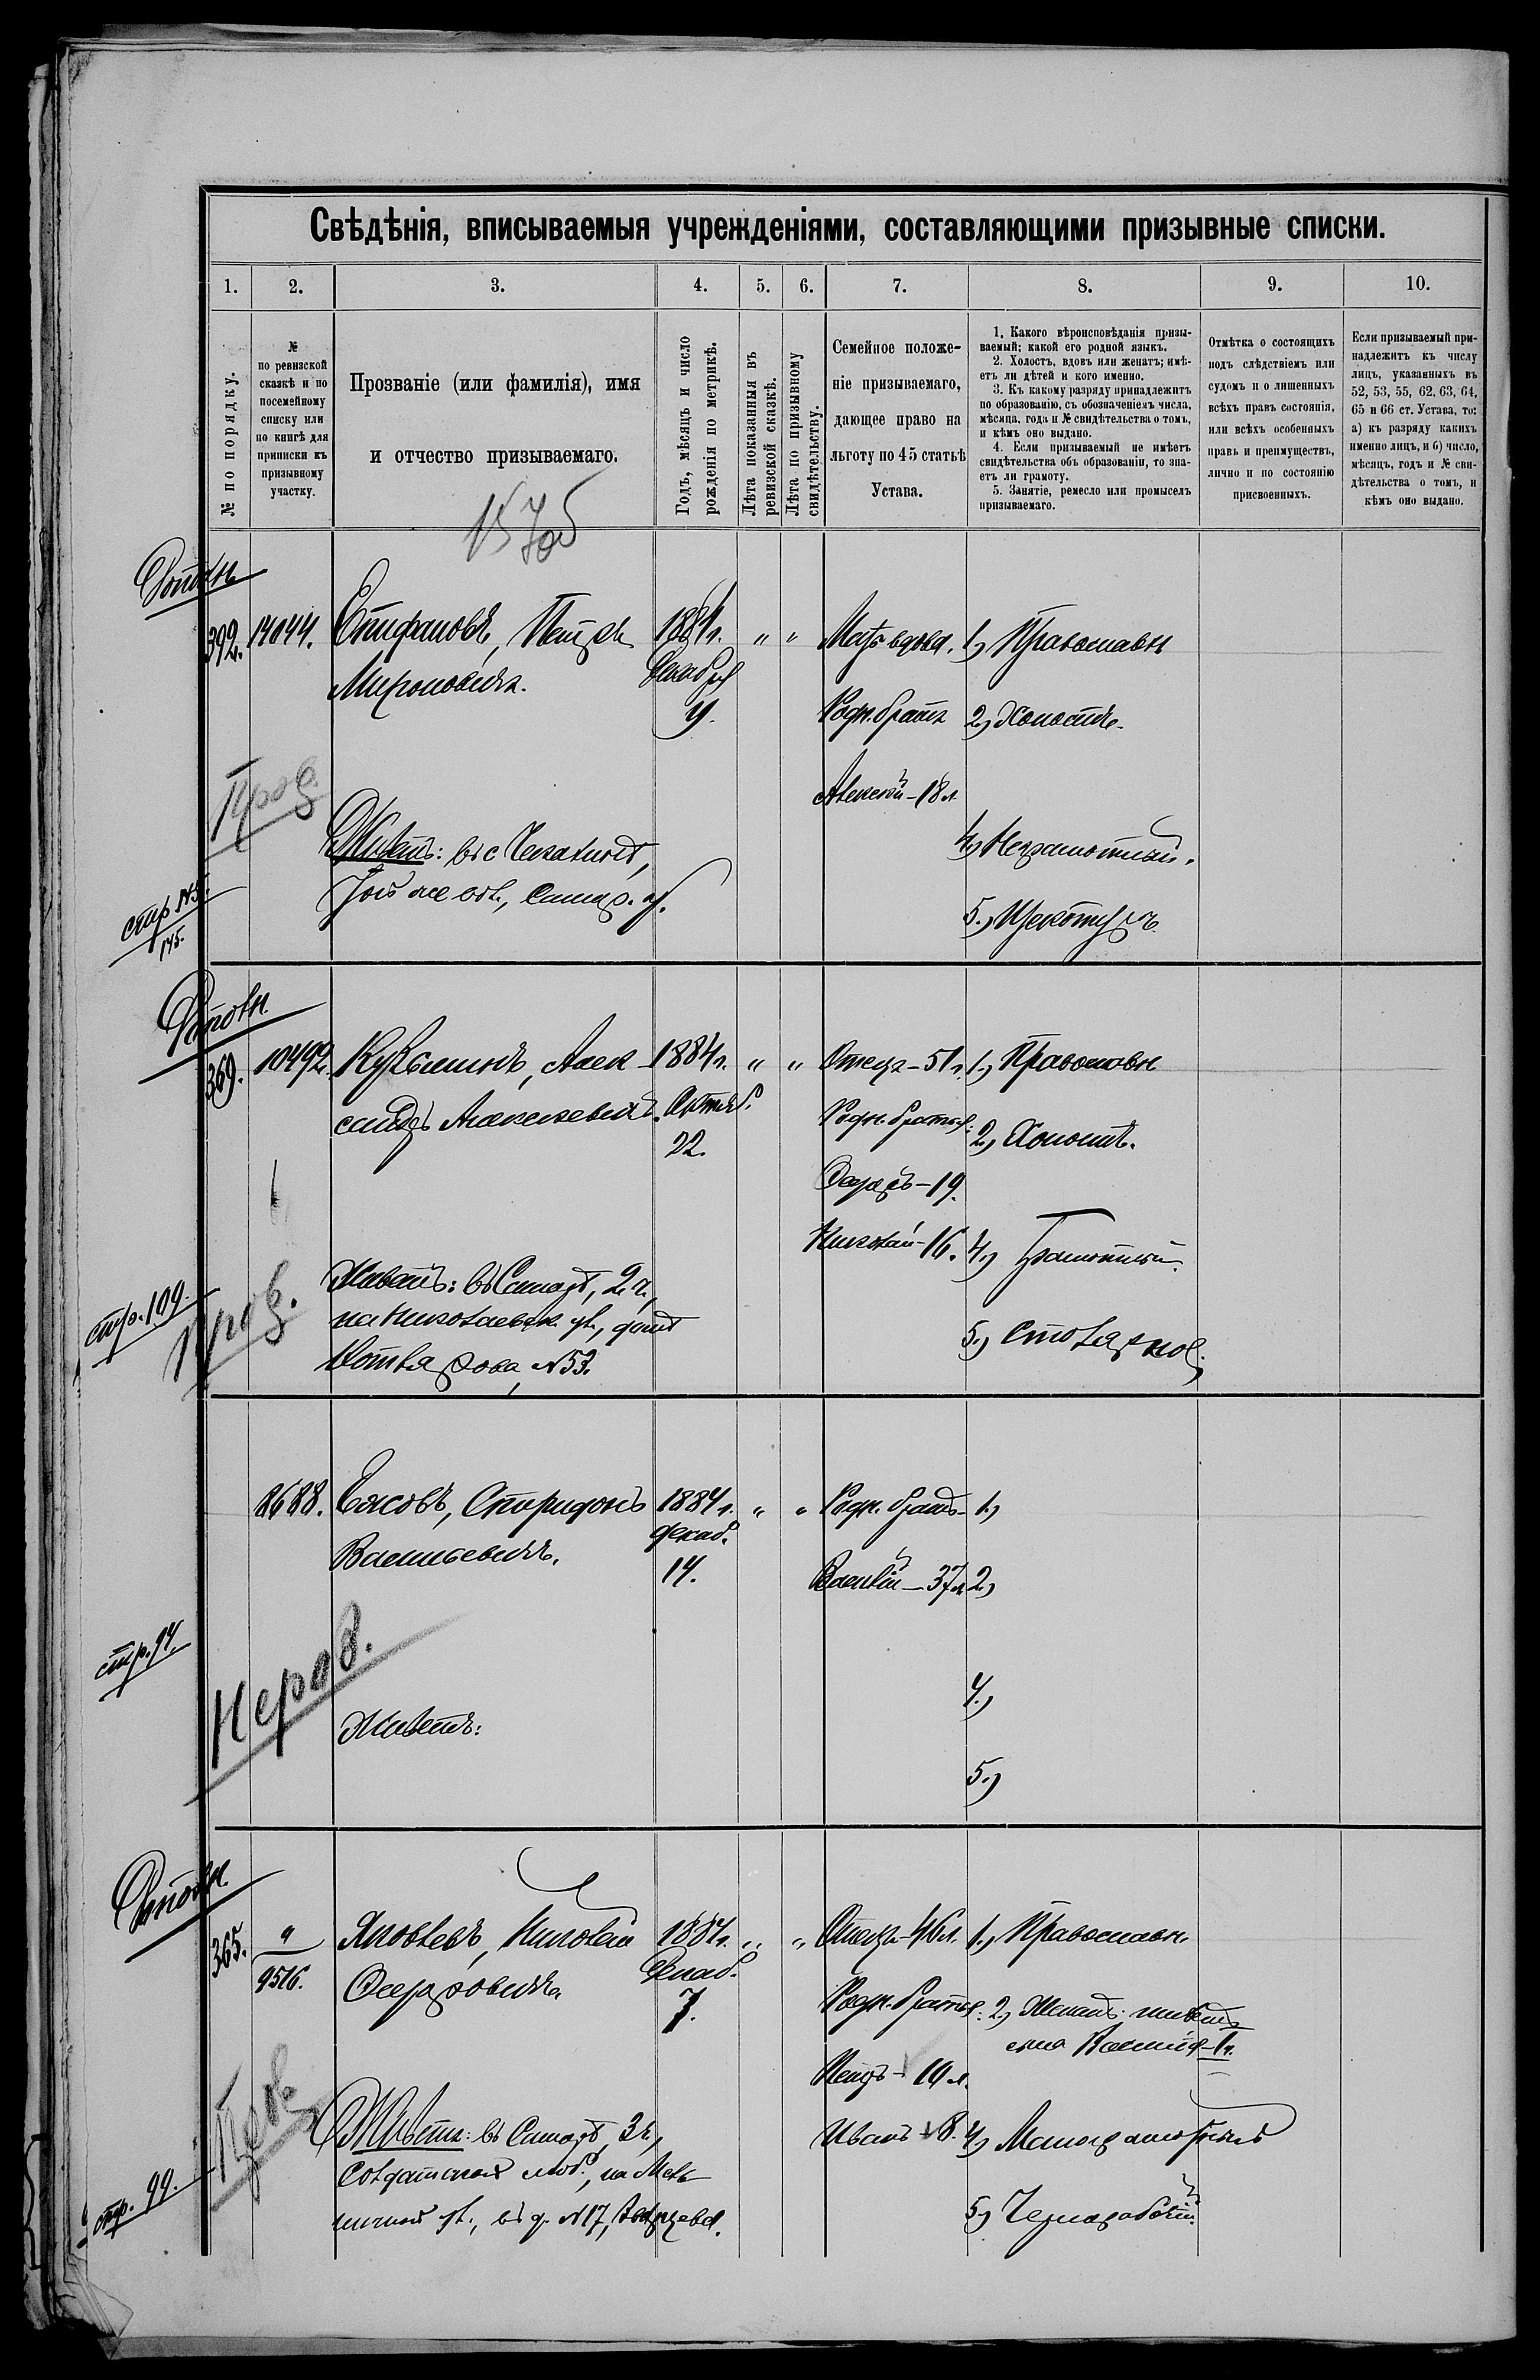 Свѣдѣнія, вписываемыя учрежденіями, составляющими призывные списки.
1. 2. 3. 4. 5. 6. 7. 8. 9. 10.
№ по порядку.
№
по ревизской
сказкѣ и по
посемейному
списку или
по книгѣ для
приписки къ
призывному
участку.
Прозваніе (или фамилія), имя
и отчество призываемаго.
Годъ, мѣсяцъ и число
рожденія по метрикѣ.
Лѣта показанныя въ
ревизской сказкѣ.
Лѣта по призывному
свидѣтельству.
Семейное положе-
ніе призываемаго,
дающее право на
льготу по 45 статьѣ
Устава.
1. Какого вѣроисповѣданія призы-
ваемый; какой его родной языкъ.
2. Холостъ, вдовъ или женатъ; имѣ-
етъ ли дѣтей и кого именно.
3. Къ какому разряду принадлежитъ
по образованію, съ обозначеніемъ числа,
мѣсяца, года и № свидѣтельства о томъ,
и кѣмъ оно выдано.
4. Если призываемый не имѣетъ
свидѣтельства объ образованіи, то зна-
етъ ли грамоту.
5. Занятіе, ремесло или промыселъ
призываемаго.
Отмѣтка о состоящихъ
подъ слѣдствіемъ или
судомъ и о лишенныхъ
всѣхъ правъ состоянія,
или всѣхъ особенныхъ
правъ и преимуществъ,
лично и по состоянію
присвоенныхъ.
Если призываемый при-
надлежитъ къ числу
лицъ, указанныхъ въ
52, 53, 55, 62, 63, 64,
65 и 66 ст. Устава, то:
а) къ разряду какихъ
именно лицъ, и б) число,
мѣсяцъ, годъ и № сви-
дѣтельства о томъ, и
кѣмъ оно выдано.
392. 14044. Степановъ, Петръ 1884 г. " " Мать вдова. 1) Православн
Мироновичъ. Декабря
9. Родн. братъ 2) Холостъ.
Алексѣй - 18 л.
Пров.
Живетъ: въ с.
той же вол., Самар. у.
4) Неграмотный.
5.) Щекотур
стр №
145.
369. 10492. Кузьминъ, Алек- 1884 г. " " Отецъ - 51 г. 1.) Православн
сандръ Алексѣевичъ. Октяб.
22. Родн. братья: 2.) Холостъ.
Федоръ - 19.
Николай - 16. 4.) Грамотный.
Живетъ: въ Самарѣ, 2 ч.,
на Николаевск. ул., домъ
№ 53.
5.) Столярное
стр. 109.
Пров.
8688. Спиридонъ 1884 г. " " Родн. братъ - 1.)
Васильевичъ. Декаб.
14. Василій - 37 л. 2.)
стр. 94.
Неров.
4.)
Живетъ:
5.)
365. 9516. Яковлевъ, Николай 1884 г. " " Отецъ - 46 л. 1.) Православн.
Федоровичъ Декаб.
7. Родн. братья: 2.) Женатъ; имѣетъ
сына Василія - 1 г.
Петръ - 19 л.
Иванъ - 8. 4.) Малограмотный
Живетъ: въ Самарѣ, 3 ч.,
Солдатская слоб., на Мель-
ничной ул., въ д. № 17,
5) Чернорабочій.
стр. 99.